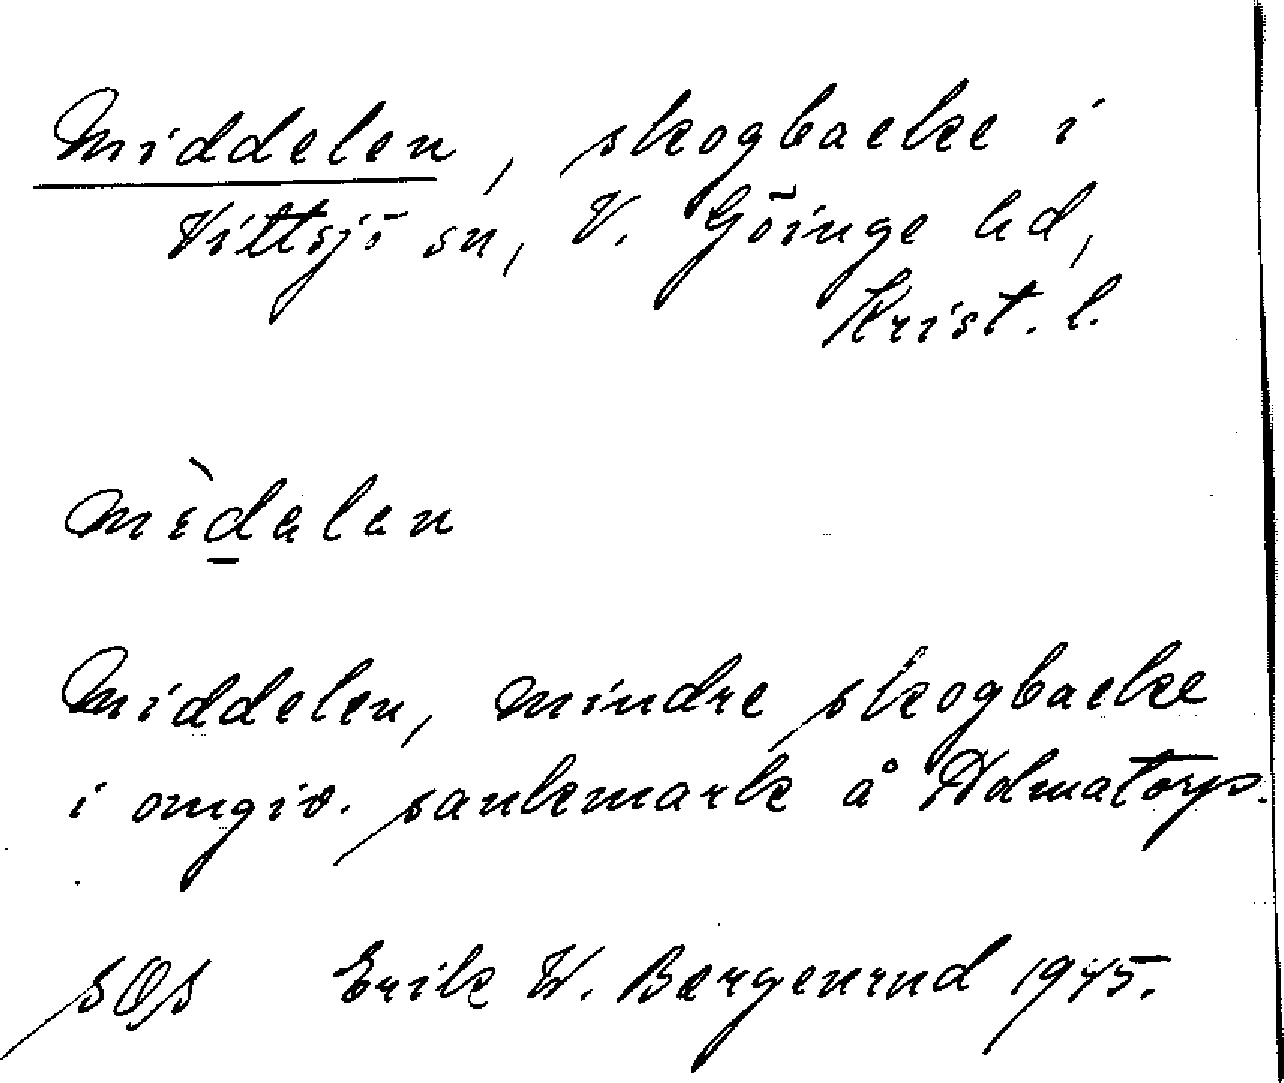 Middelen, skogbacke i
Vittsjö sn, V. Göinge hd,
Krist. l.
mèdalan
Middelen, mindre skogbacke
i omgiv. sankmark å Holmatorp.
sOs Erik W. Bergenrud 1945.